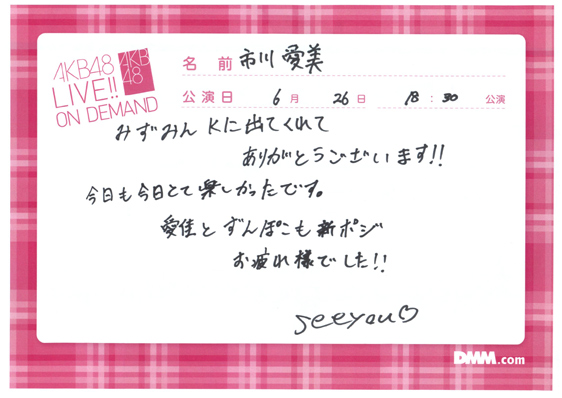 AKB48
LIVE!!
ON DEMAND
AKB
48
名 前 市川愛美
公演日 6月 26日 18:30 公演
みずみん Kに出てくれて
ありがとうございます!!
今日も今日とて楽しかったです。
愛佳とずんぽこも新ポジ
お疲れ様でした!!
seeyou♡
DMM.com